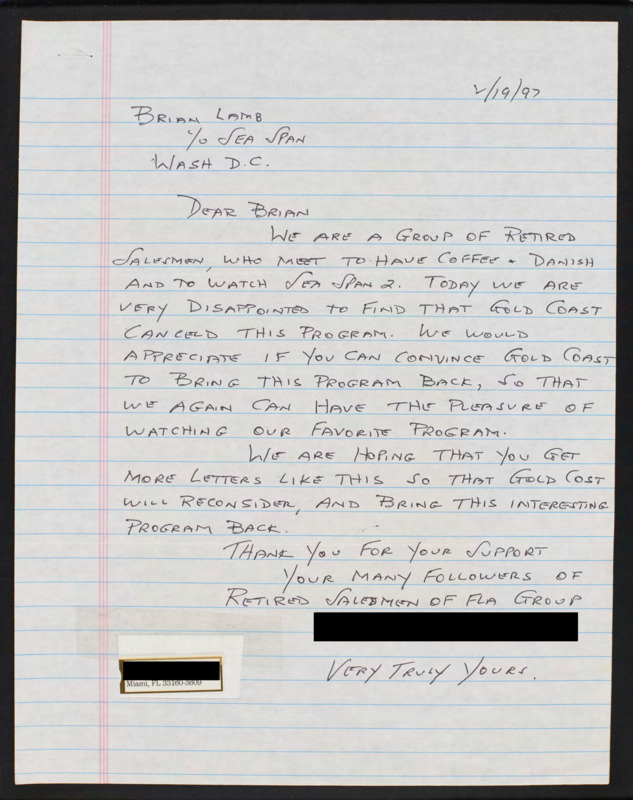 2/19/97
BRIAN LAMB
c/o SEA SPAN
WASH D.C.
DEAR BRIAN
WE ARE A GROUP OF RETIRED
SALESMEN, WHO MEET TO HAVE COFFEE + DANISH
AND TO WATCH SEA SPAN 2. TODAY WE ARE
VERY DISAPPOINTED TO FIND THAT GOLD COAST
CANCELD THIS PROGRAM. WE WOULD
APPRECIATE IF YOU CAN CONVINCE GOLD COAST
TO BRING THIS PROGRAM BACK, SO THAT
WE AGAIN CAN HAVE THE PLEASURE OF
WATCHING OUR FAVORITE PROGRAM.
WE ARE HOPING THAT YOU GET
MORE LETTERS LIKE THIS SO THAT GOLD COST
WILL RECONSIDER, AND BRING THIS INTERESTING
PROGRAM BACK.
THANK YOU FOR YOUR SUPPORT
YOUR MANY FOLLOWERS OF
RETIRED SALESMEN OF FLA GROUP
Miami, FL 33160-3609
VERY TRULY YOURS.